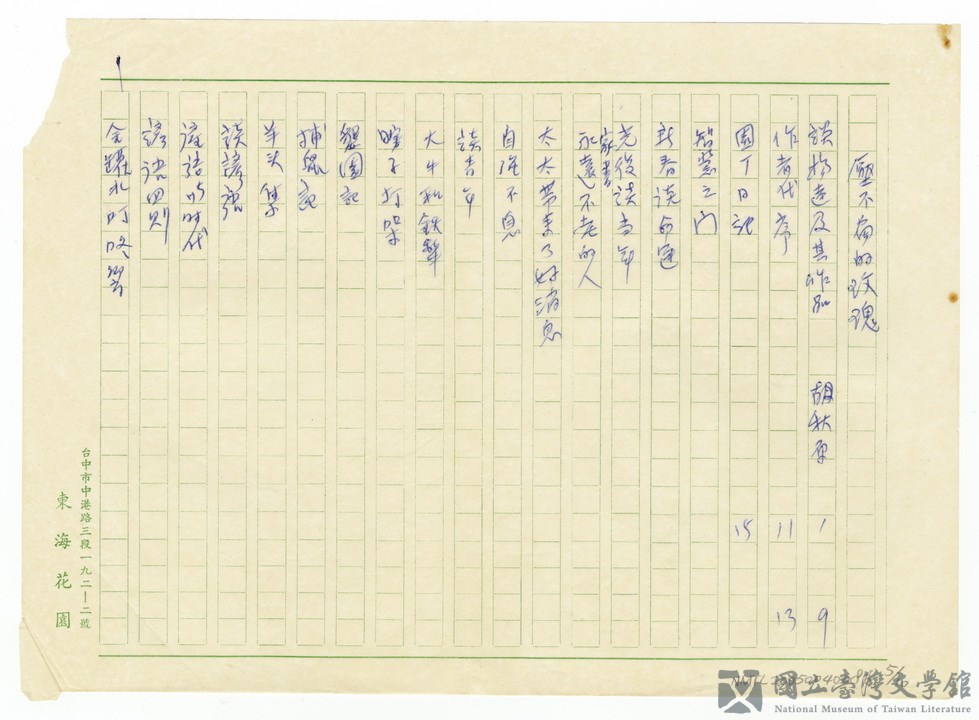 壓不扁的玫瑰
談楊逵及其作品 胡秋原 1 9
作者代序 11 13
園丁日記 15
智慧之门
新春談命運
光復談当年
家書
永遠不老的人
太太带来了好消息
自强不息
談青年
大牛和铁犂
瞎子打架
墾園記
捕鼠記
羊头集
談諺語
諺語的时代
諺語四则
台中市中港路三段一九二—二號
東海花園
國立臺灣文學館
National Museum of Taiwan Literature